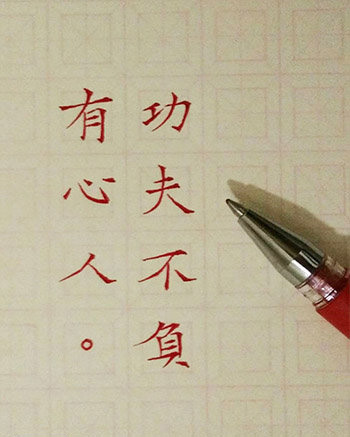 功夫不負
有心人。